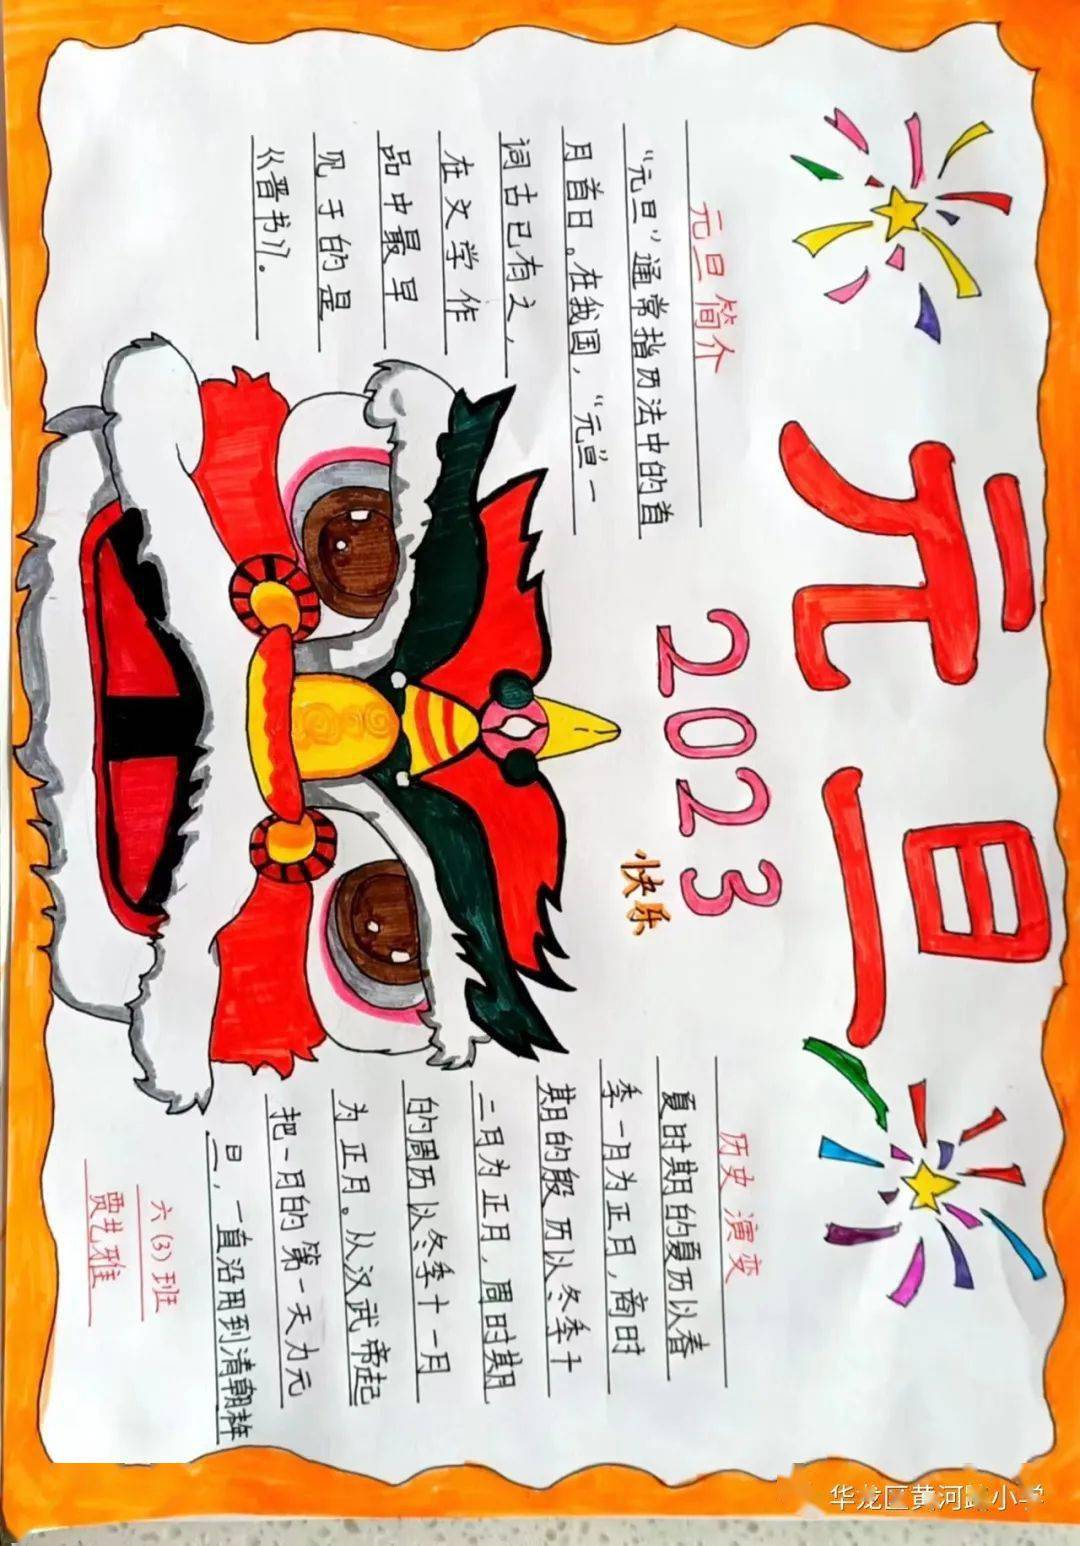 元旦
2023
快乐
元旦简介
“元旦”通常指历法中的首
月首日。在我国，“元旦”一
词古已有之，
在文学作
品中最早
见于的是
《晋书》。
历史演变
夏时期的夏历以春
季一月为正月，商时
期的殷历以冬季十
二月为正月，周时期
的周历以冬季十一月
为正月。从汉武帝起
把一月的第一天为元
旦，一直沿用到清朝
六（3）班
贾艺雅
华龙区黄河路小学